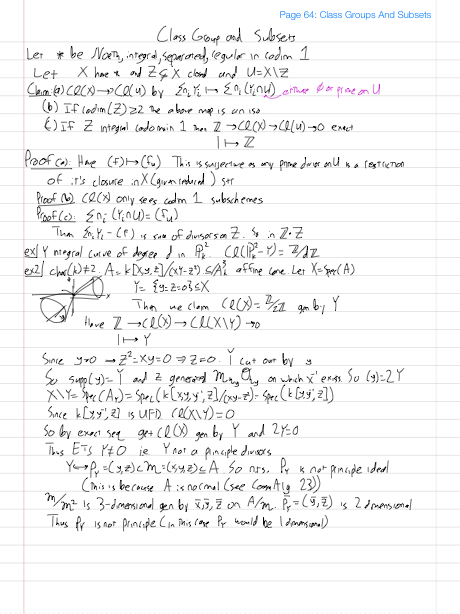 Page 64: Class Groups And Subsets
Class Group and Subsets
Let * be Noeth, integral, separated, regular in codim 1
Let X have * and Z ⊊ X closed and U=X\Z
Claim: (a) Cl(X)→Cl(U) by ΣnᵢYᵢ ↦ Σnᵢ(Yᵢ∩U) either ∅ or prime on U
(b) If codim(Z)≥2 the above map is an iso
(c) If Z integral codomain 1 then Z→Cl(X)→Cl(U)→0 exact
1 ↦ Z
Proof (a): Have (f)↦(fᵤ) This is surjective as any prime divisor on U is a restriction
of it's closure in X (given reduced) str
Proof (b) Cl(X) only sees codim 1 subschemes
Proof (c): Σnᵢ(Yᵢ∩U)=(fᵤ)
Then ΣnᵢYᵢ-(f) is sum of divisors on Z. So in Z·Z
ex| Y integral curve of degree d in P²ₖ Cl(P²ₖ-Y)=Z/dZ
ex2| char(k)≠2. A=k[x,y,z]/(xy-z²)⊆A³ₖ affine cone. Let X=Spec(A)
Y={y=z=0}⊆X
x
Then we claim Cl(X)=Z/2Z gen by Y
Have Z→Cl(X)→Cl(X\Y)→0
1 ↦ Y
Since y=0 ⇒ z²=xy=0 ⇒ z=0. Y cut out by y
So supp(y)=Y and z generates on which x⁻¹ exists. So (y)=2Y
X\Y=Spec(A_y)=Spec(k[x,y,y⁻¹,z]/(xy-z²))=Spec(k[y,y⁻¹,z])
Since k[y,y⁻¹,z] is UFD Cl(X\Y)=0
So by exact seq get Cl(X) gen by Y and 2Y=0
Thus ETS Y≠0 ie Y not a principle divisors
Y↔P_Y=(y,z)⊂m=(x,y,z)⊆A. So nts. P_Y is not principle ideal
(this is because A is normal (see CommAlg 23))
m/m² is 3-dimensional gen by x̄,ȳ,z̄ on A/m. P̄_Y=(ȳ,z̄) is 2 dimensional
Thus P_Y is not principle (in this case P_Y would be 1 dimensional)